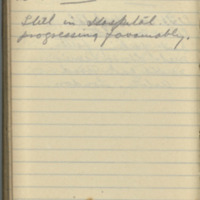 Still in Hospital.
progressing favourably.